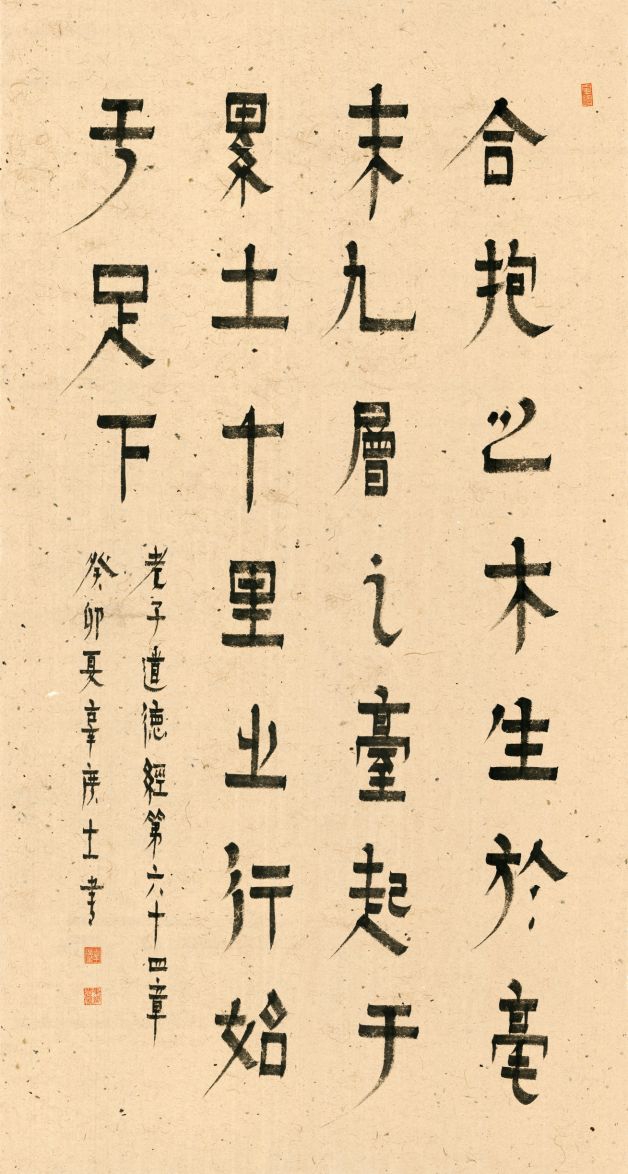 合抱之木生於毫
末九層之臺起于
累土千里之行始
于足下
老子道德經第六十四章
癸卯夏士書